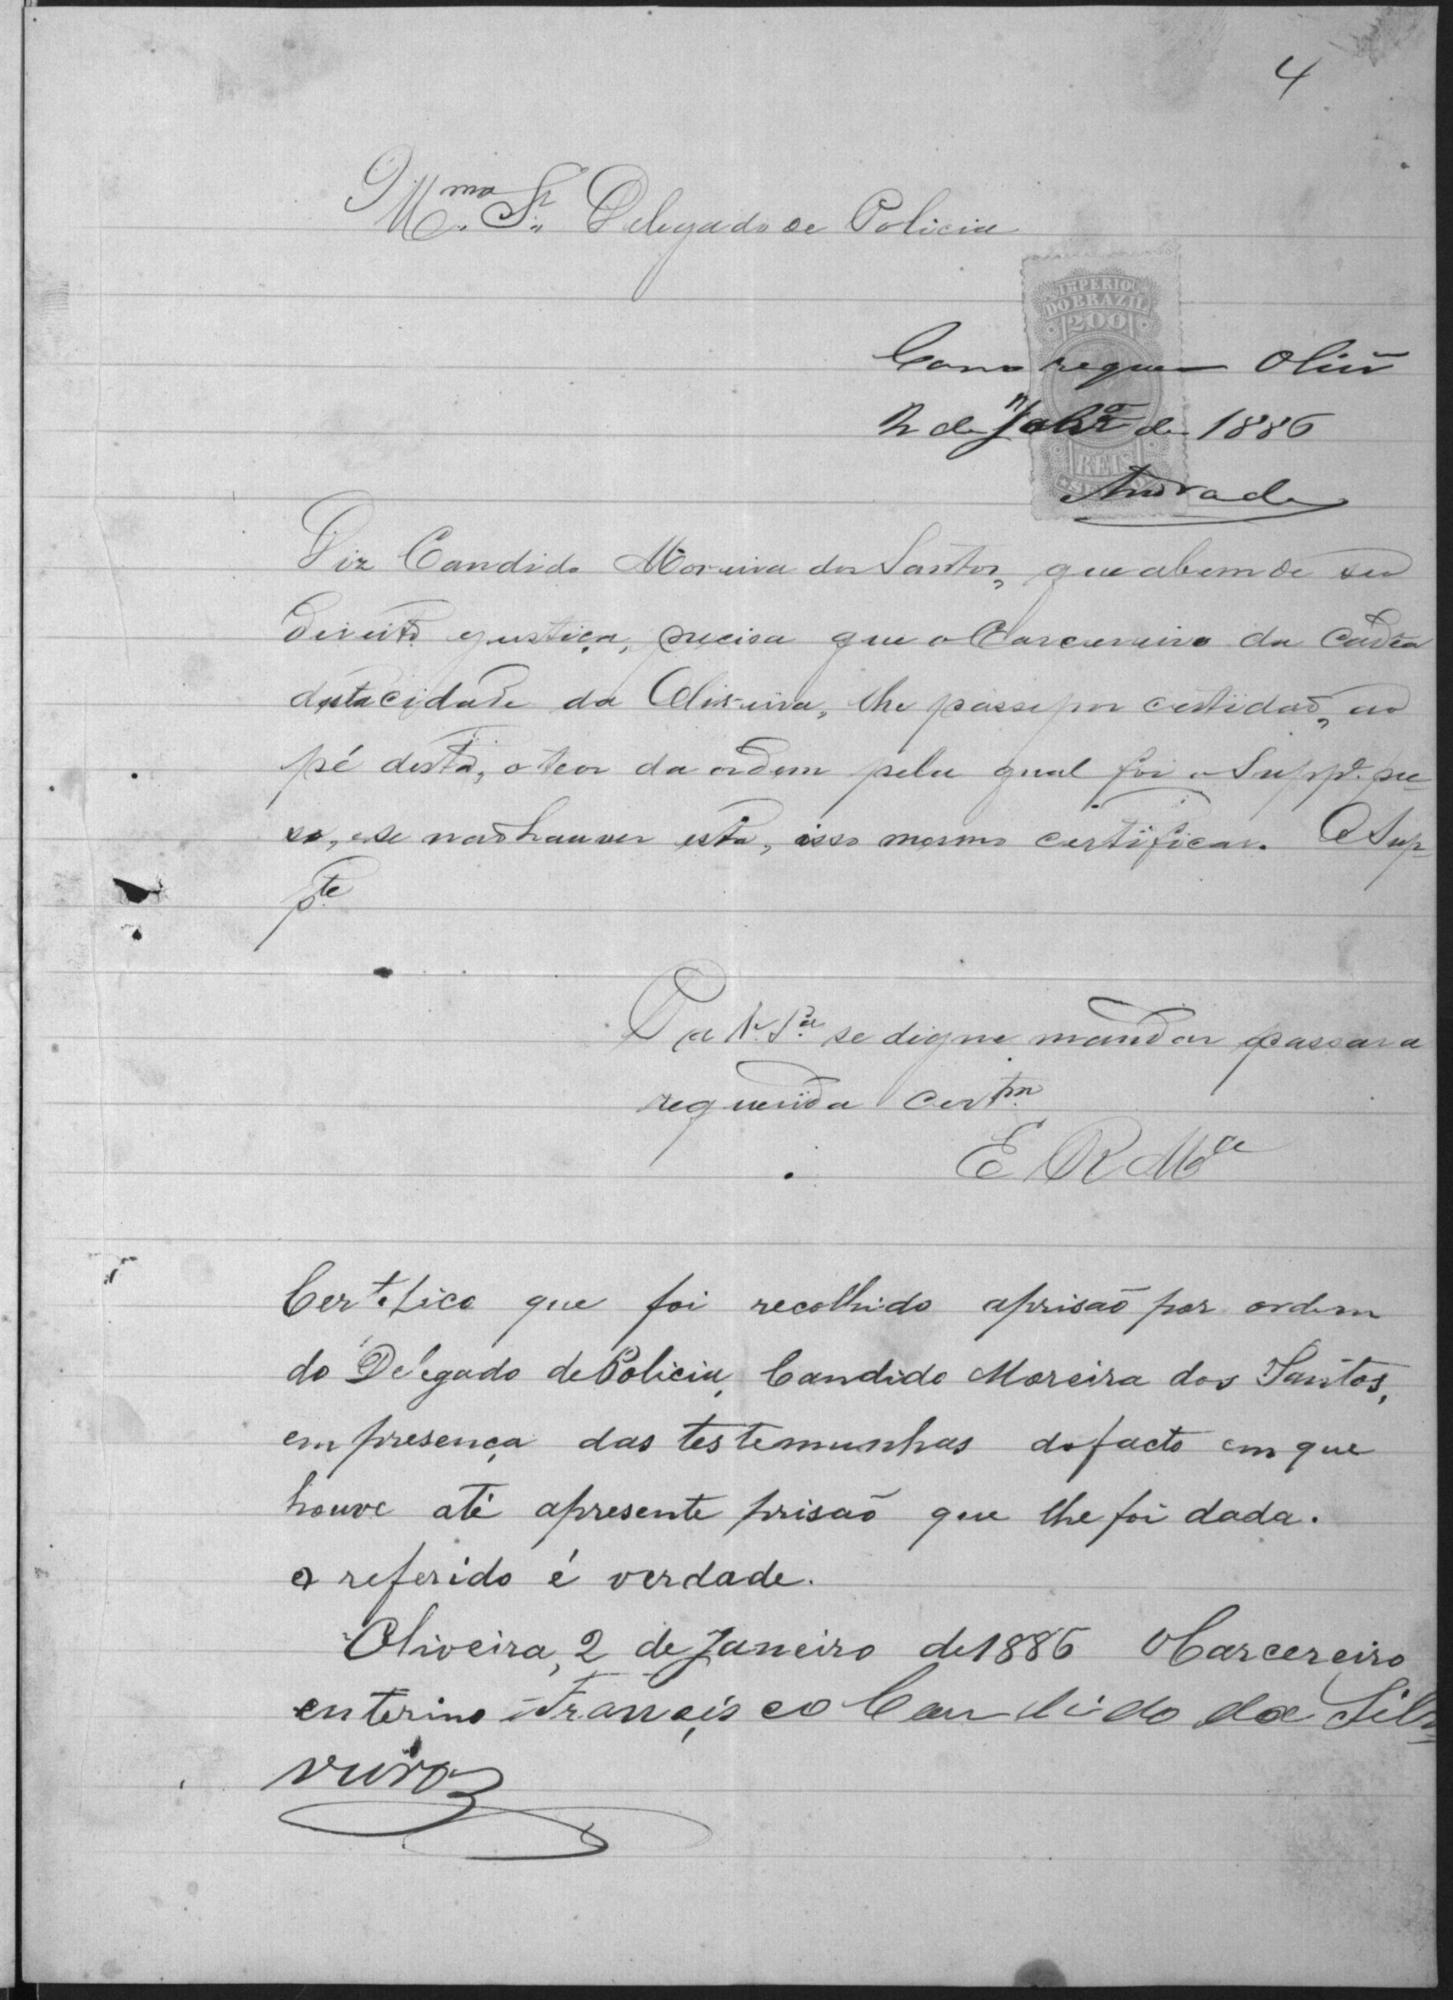 4
Illmo. Sr. Delegado de Policia
IMPERIO
DO BRAZIL
200
REIS
Como requer Oliva
2 de Janro de 1886
Andrade
Diz Candido Moreira dos Santos, que abem de seu
direito ejustiça, precisa que o Carcereiro da Cadea
desta cidade da Oliveira, lhe passe por certidaõ, ao
pé desta, o teor da ordem pela qual foi o Suppe. pre-
so, e se naõ houver esta, isso mesmo certificar. O Sup-
pte
P a V. Sa. se digne mandar passar a
requerida certam
E R Mce
Certifico que foi recolhido aprisaõ por ordem
do Delegado de Policia, Candido Moreira dos Santos,
em presença das testemunhas dofacto em que
houve até apresente prisaõ que lhe foi dada.
o referido é verdade.
Oliveira, 2 de Janeiro de 1886 O Carcereiro
enterino Françisco Candido da Silv